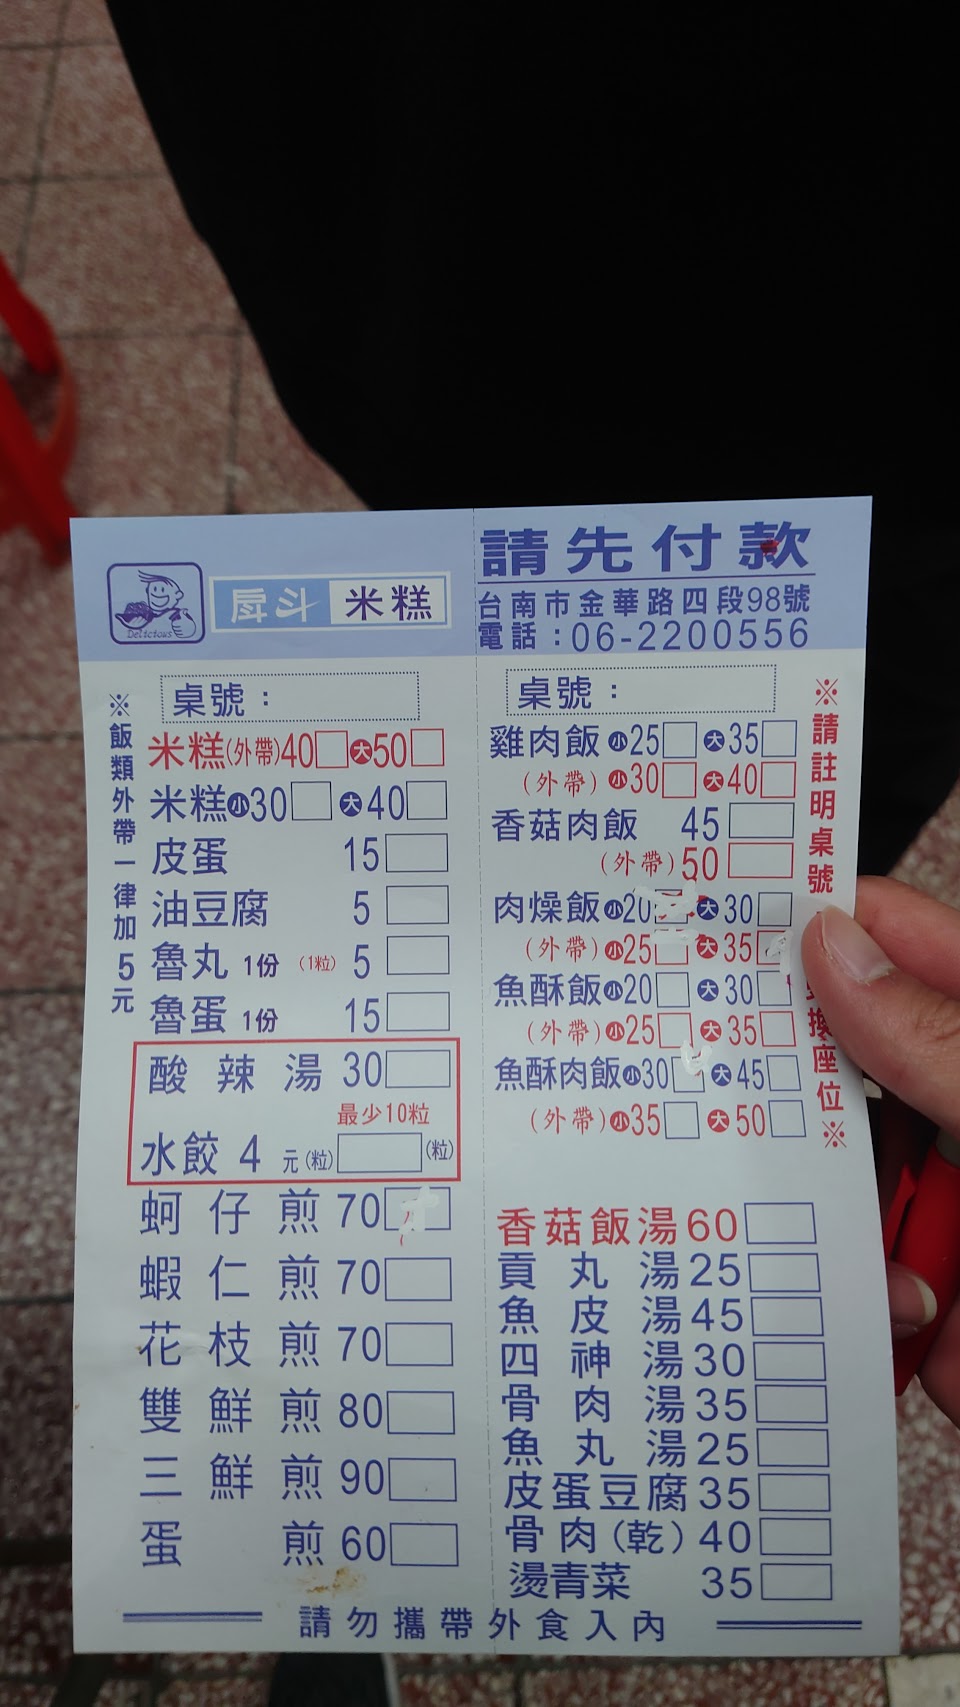 請先付款
台南市金華路四段98號
電話：06-2200556
Delicious
戽斗 米糕
※飯類外帶一律加5元
桌號：
米糕(外帶)40 大50
米糕小30 大40
皮蛋 15
油豆腐 5
魯丸 1份 (1粒) 5
魯蛋 1份 15
酸辣湯 30
最少10粒
水餃 4 元(粒) (粒)
蚵仔煎 70
蝦仁煎 70
花枝煎 70
雙鮮煎 80
三鮮煎 90
蛋煎 60
桌號：
雞肉飯 小25 大35
(外帶) 小30 大40
香菇肉飯 45
(外帶) 50
肉燥飯 小20 大30
(外帶) 小25 大35
魚酥飯 小20 大30
(外帶) 小25 大35
魚酥肉飯 小30 大45
(外帶) 小35 大50
香菇飯湯 60
貢丸湯 25
魚皮湯 45
四神湯 30
骨肉湯 35
魚丸湯 25
皮蛋豆腐 35
骨肉(乾) 40
燙青菜 35
※請註明桌號 換座位※
請勿攜帶外食入內